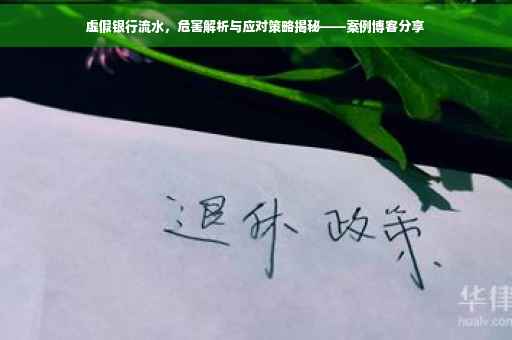 虚假银行流水，危害解析与应对策略揭秘——案例博客分享
退休 政策
华律
hualv.com